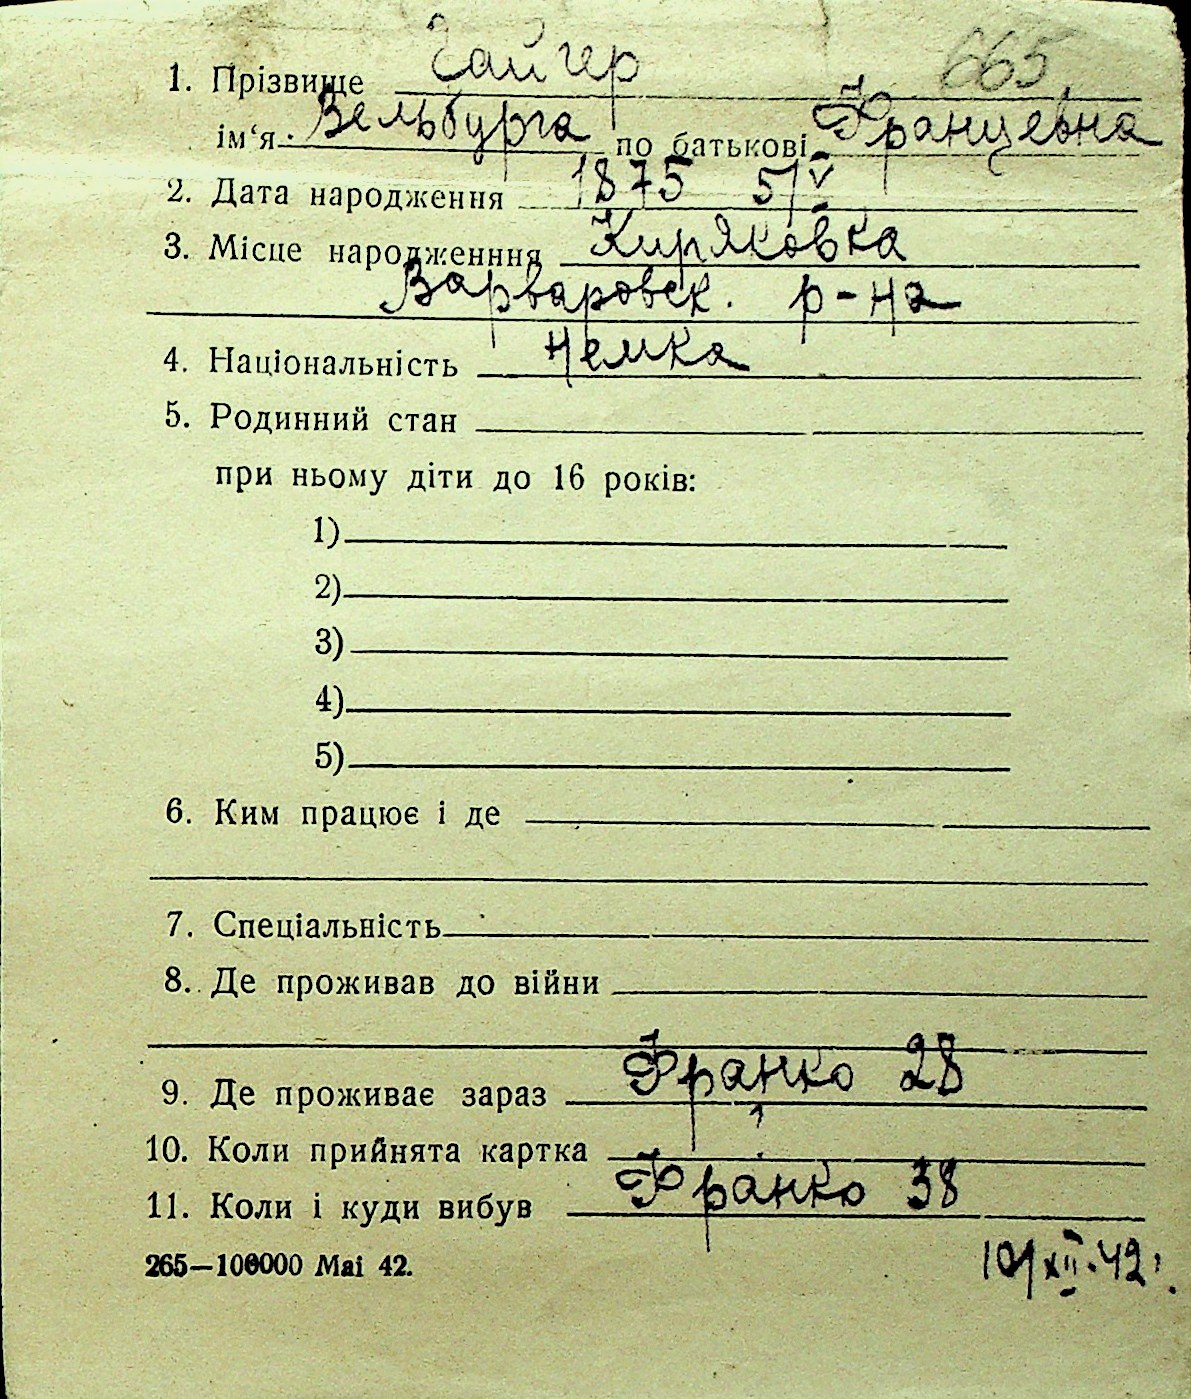 665
1. Прізвище Гайгер
ім‘я Вельбурга по батькові Францевна
2. Дата народження 1875 5/V
3. Місце народженння Киряковка
Варваровск. р-на
4. Національність немка
5. Родинний стан
при ньому діти до 16 років:
1)
2)
3)
4)
5)
6. Ким працює і де
7. Спеціальність
8. Де проживав до війни
9. Де проживає зараз Франко 28
10. Коли прийнята картка
11. Коли і куди вибув Франко 38
265—100000 Mai 42.
10/XII.42.